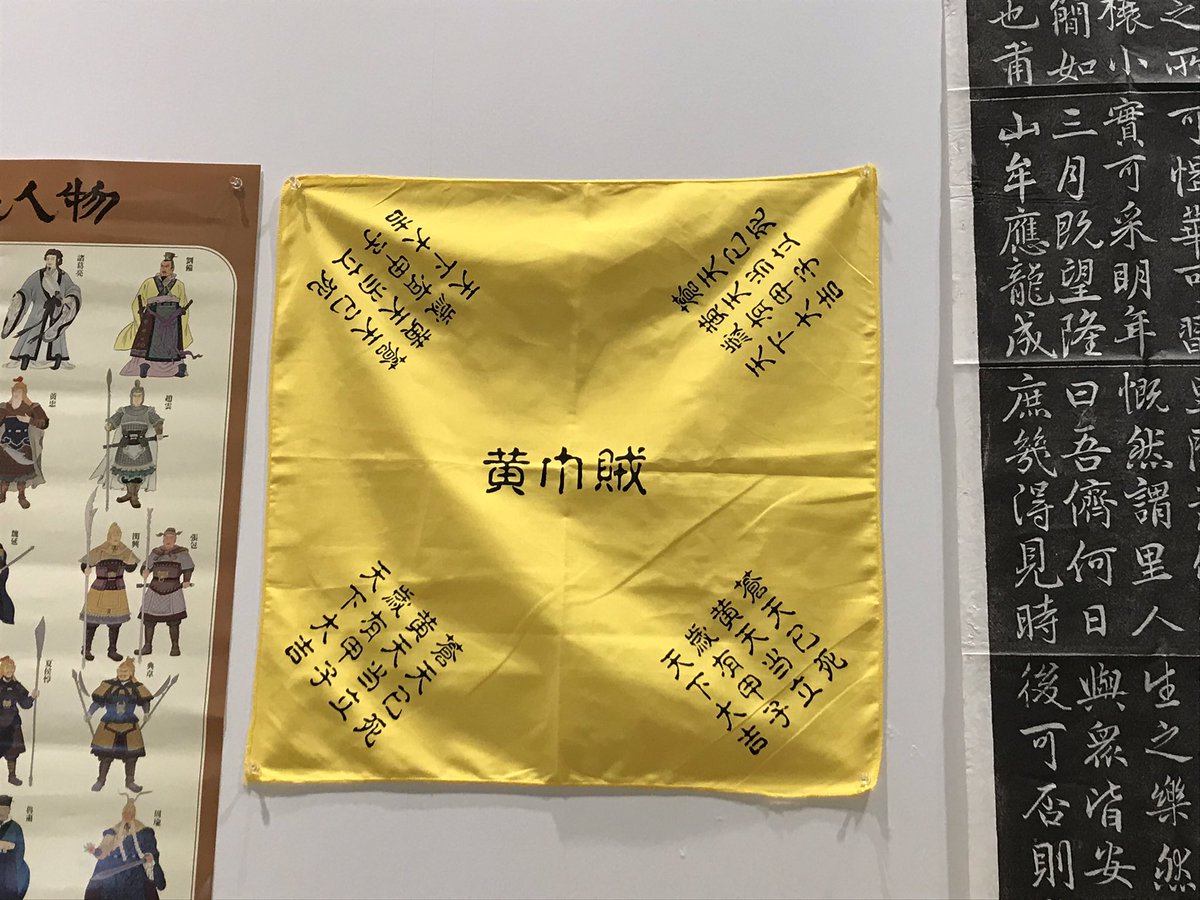 人物
劉備
諸葛亮
趙雲
黃忠
張包
関興
魏延
典韋
夏侯惇
周瑜
魯肅
蒼天已死
黄天当立
歳有甲子
天下大吉
蒼天已死
黄天当立
歳有甲子
天下大吉
黄巾賊
蒼天已死
黄天当立
歳有甲子
天下大吉
蒼天已死
黄天当立
歳有甲子
天下大吉
小實可采明年慨然謂里人生之樂然
簡如三月既望隆曰吾儕何日與衆皆安
也甫山牟應龍成庶幾得見時後可否則